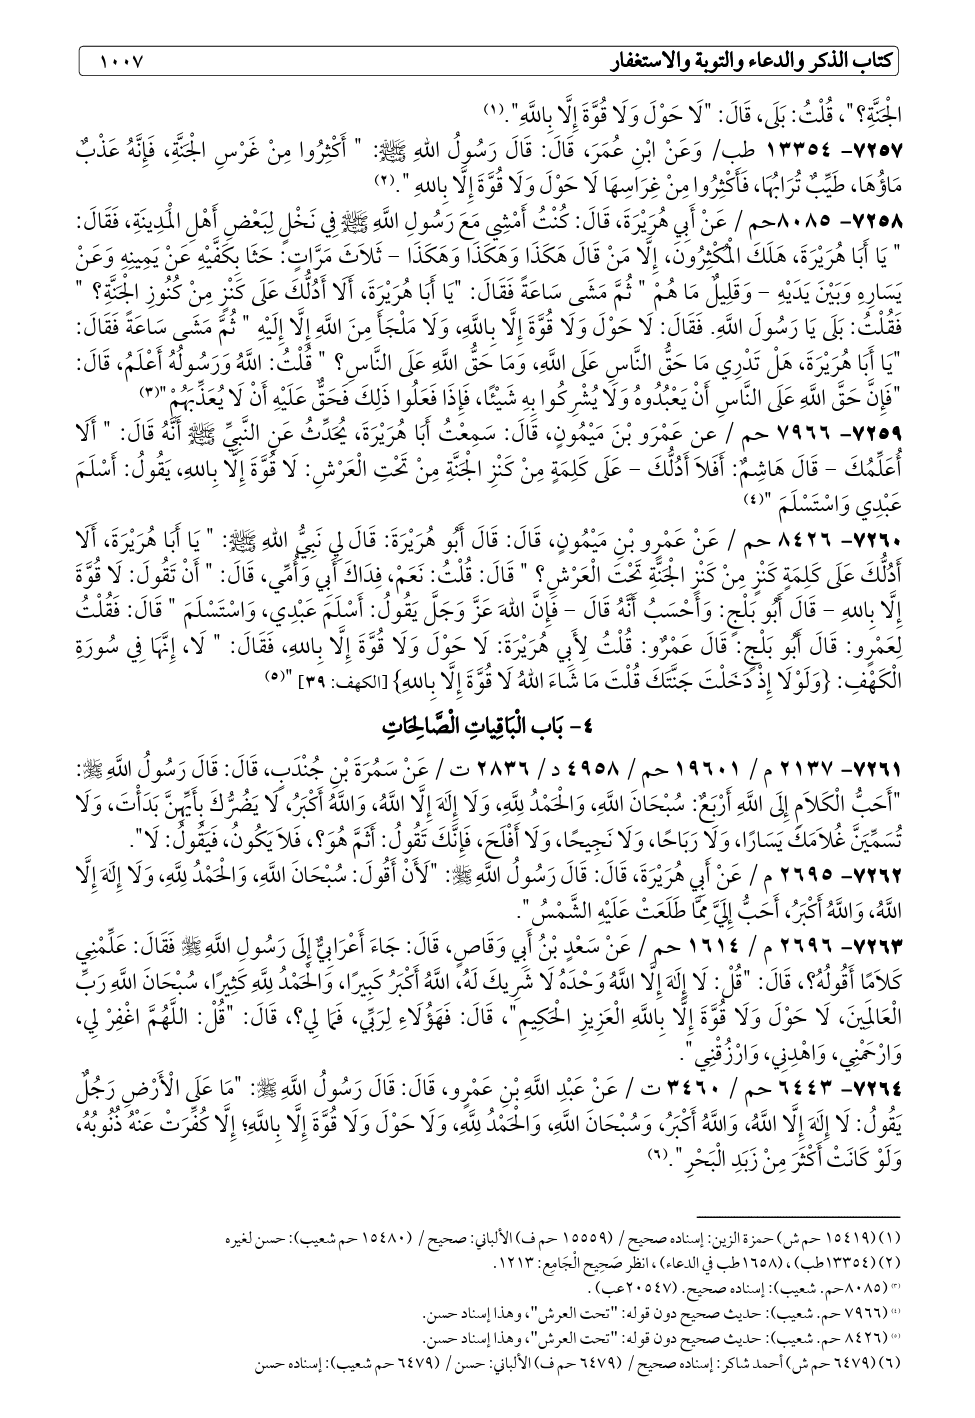 كتاب الذكر والدعاء والتوبة والاستغفار ١٠٠٧
الْجَنَّةِ؟"، قُلْتُ: بَلَى، قَالَ: "لَا حَوْلَ وَلَا قُوَّةَ إِلَّا بِاللَّهِ".(١)
٧٢٥٧- ١٣٣٥٤ طب/ وَعَنْ ابْنِ عُمَرَ، قَالَ: قَالَ رَسُولُ اللهِ ﷺ: " أَكْثِرُوا مِنْ غَرْسِ الْجَنَّةِ، فَإِنَّهُ عَذْبٌ
مَاؤُهَا، طَيِّبٌ تُرَابُهَا، فَأَكْثِرُوا مِنْ غِرَاسِهَا لَا حَوْلَ وَلَا قُوَّةَ إِلَّا بِاللهِ ".(٢)
٧٢٥٨- ٨٠٨٥حم / عَنْ أَبِي هُرَيْرَةَ، قَالَ: كُنْتُ أَمْشِي مَعَ رَسُولِ اللَّهِ ﷺ فِي نَخْلٍ لِبَعْضِ أَهْلِ الْمَدِينَةِ، فَقَالَ:
" يَا أَبَا هُرَيْرَةَ، هَلَكَ الْمُكْثِرُونَ، إِلَّا مَنْ قَالَ هَكَذَا وَهَكَذَا وَهَكَذَا – ثَلَاثَ مَرَّاتٍ: حَثَا بِكَفَّيْهِ عَنْ يَمِينِهِ وَعَنْ
يَسَارِهِ وَبَيْنَ يَدَيْهِ – وَقَلِيلٌ مَا هُمْ " ثُمَّ مَشَى سَاعَةً فَقَالَ: "يَا أَبَا هُرَيْرَةَ، أَلَا أَدُلُّكَ عَلَى كَنْزٍ مِنْ كُنُوزِ الْجَنَّةِ؟ "
فَقُلْتُ: بَلَى يَا رَسُولَ اللَّهِ. فَقَالَ: لَا حَوْلَ وَلَا قُوَّةَ إِلَّا بِاللَّهِ، وَلَا مَلْجَأَ مِنَ اللَّهِ إِلَّا إِلَيْهِ " ثُمَّ مَشَى سَاعَةً فَقَالَ:
"يَا أَبَا هُرَيْرَةَ، هَلْ تَدْرِي مَا حَقُّ النَّاسِ عَلَى اللَّهِ، وَمَا حَقُّ اللَّهِ عَلَى النَّاسِ؟ " قُلْتُ: اللَّهُ وَرَسُولُهُ أَعْلَمُ، قَالَ:
"فَإِنَّ حَقَّ اللَّهِ عَلَى النَّاسِ أَنْ يَعْبُدُوهُ وَلَا يُشْرِكُوا بِهِ شَيْئًا، فَإِذَا فَعَلُوا ذَلِكَ فَحَقٌّ عَلَيْهِ أَنْ لَا يُعَذِّبَهُمْ"(٣)
٧٢٥٩- ٧٩٦٦ حم / عن عَمْرَو بْنَ مَيْمُونٍ، قَالَ: سَمِعْتُ أَبَا هُرَيْرَةَ، يُحَدِّثُ عَنِ النَّبِيِّ ﷺ أَنَّهُ قَالَ: " أَلَا
أُعَلِّمُكَ – قَالَ هَاشِمٌ: أَفَلَا أَدُلُّكَ – عَلَى كَلِمَةٍ مِنْ كَنْزِ الْجَنَّةِ مِنْ تَحْتِ الْعَرْشِ: لَا قُوَّةَ إِلَّا بِاللهِ، يَقُولُ: أَسْلَمَ
عَبْدِي وَاسْتَسْلَمَ "(٤)
٧٢٦٠- ٨٤٢٦ حم / عَنْ عَمْرِو بْنِ مَيْمُونٍ، قَالَ: قَالَ أَبُو هُرَيْرَةَ: قَالَ لِي نَبِيُّ اللهِ ﷺ: " يَا أَبَا هُرَيْرَةَ، أَلَا
أَدُلُّكَ عَلَى كَلِمَةٍ كَنْزٍ مِنْ كَنْزِ الْجَنَّةِ تَحْتَ الْعَرْشِ؟ " قَالَ: قُلْتُ: نَعَمْ، فِدَاكَ أَبِي وَأُمِّي، قَالَ: " أَنْ تَقُولَ: لَا قُوَّةَ
إِلَّا بِاللهِ – قَالَ أَبُو بَلْجٍ: وَأَحْسَبُ أَنَّهُ قَالَ – فَإِنَّ اللهَ عَزَّ وَجَلَّ يَقُولُ: أَسْلَمَ عَبْدِي، وَاسْتَسْلَمَ " قَالَ: فَقُلْتُ
لِعَمْرٍو: قَالَ أَبُو بَلْجٍ: قَالَ عَمْرٌو: قُلْتُ لِأَبِي هُرَيْرَةَ: لَا حَوْلَ وَلَا قُوَّةَ إِلَّا بِاللهِ، فَقَالَ: " لَا، إِنَّهَا فِي سُورَةِ
الْكَهْفِ: {وَلَوْلَا إِذْ دَخَلْتَ جَنَّتَكَ قُلْتَ مَا شَاءَ اللهُ لَا قُوَّةَ إِلَّا بِاللهِ} [الكهف: ٣٩] "(٥)
٤- بَاب الْبَاقِيَاتِ الْصَّالِحَاتِ
٧٢٦١- ٢١٣٧ م/ ١٩٦٠١ حم/ ٤٩٥٨ د/ ٢٨٣٦ ت/ عَنْ سَمُرَةَ بْنِ جُنْدَبٍ، قَالَ: قَالَ رَسُولُ اللَّهِ ﷺ:
"أَحَبُّ الْكَلَامِ إِلَى اللَّهِ أَرْبَعٌ: سُبْحَانَ اللَّهِ، وَالْحَمْدُ لِلَّهِ، وَلَا إِلَهَ إِلَّا اللَّهُ، وَاللَّهُ أَكْبَرُ، لَا يَضُرُّكَ بِأَيِّهِنَّ بَدَأْتَ، وَلَا
تُسَمِّيَنَّ غُلَامَكَ يَسَارًا، وَلَا رَبَاحًا، وَلَا نَجِيحًا، وَلَا أَفْلَحَ، فَإِنَّكَ تَقُولُ: أَثَمَّ هُوَ؟، فَلَا يَكُونُ، فَيَقُولُ: لَا".
٧٢٦٢- ٢٦٩٥ م/ عَنْ أَبِي هُرَيْرَةَ، قَالَ: قَالَ رَسُولُ اللَّهِ ﷺ: "لَأَنْ أَقُولَ: سُبْحَانَ اللَّهِ، وَالْحَمْدُ لِلَّهِ، وَلَا إِلَهَ إِلَّا
اللَّهُ، وَاللَّهُ أَكْبَرُ، أَحَبُّ إِلَيَّ مِمَّا طَلَعَتْ عَلَيْهِ الشَّمْسُ".
٧٢٦٣- ٢٦٩٦ م/ ١٦١٤ حم/ عَنْ سَعْدِ بْنُ أَبِي وَقَاصٍ، قَالَ: جَاءَ أَعْرَابِيٌّ إِلَى رَسُولِ اللَّهِ ﷺ فَقَالَ: عَلِّمْنِي
كَلَامًا أَقُولُهُ؟، قَالَ: "قُلْ: لَا إِلَهَ إِلَّا اللَّهُ وَحْدَهُ لَا شَرِيكَ لَهُ، اللَّهُ أَكْبَرُ كَبِيرًا، وَالْحَمْدُ لِلَّهِ كَثِيرًا، سُبْحَانَ اللَّهِ رَبِّ
الْعَالَمِينَ، لَا حَوْلَ وَلَا قُوَّةَ إِلَّا بِاللَّهِ الْعَزِيزِ الْحَكِيمِ"، قَالَ: فَهَؤُلَاءِ لِرَبِّي، فَمَا لِي؟، قَالَ: "قُلْ: اللَّهُمَّ اغْفِرْ لِي،
وَارْحَمْنِي، وَاهْدِنِي، وَارْزُقْنِي".
٧٢٦٤- ٦٤٤٣ حم/ ٣٤٦٠ ت / عَنْ عَبْدِ اللَّهِ بْنِ عَمْرٍو، قَالَ: قَالَ رَسُولُ اللَّهِ ﷺ: "مَا عَلَى الْأَرْضِ رَجُلٌ
يَقُولُ: لَا إِلَهَ إِلَّا اللَّهُ، وَاللَّهُ أَكْبَرُ، وَسُبْحَانَ اللَّهِ، وَالْحَمْدُ لِلَّهِ، وَلَا حَوْلَ وَلَا قُوَّةَ إِلَّا بِاللَّهِ؛ إِلَّا كُفِّرَتْ عَنْهُ ذُنُوبُهُ،
وَلَوْ كَانَتْ أَكْثَرَ مِنْ زَبَدِ الْبَحْرِ".(٦)
(١) (١٥٤١٩ حم ش) حمزة الزين: إسناده صحيح/ (١٥٥٥٩ حم ف) الألباني: صحيح/ (١٥٤٨٠ حم شعيب): حسن لغيره
(٢) (١٣٣٥٤طب)، (١٦٥٨طب في الدعاء)، انظر صَحِيح الْجَامِع: ١٢١٣.
(٣) (٨٠٨٥حم. شعيب): إسناده صحيح. (٢٠٥٤٧عب).
(٤) (٧٩٦٦ حم. شعيب): حديث صحيح دون قوله: "تحت العرش"، وهذا إسناد حسن.
(٥) (٨٤٢٦ حم. شعيب): حديث صحيح دون قوله: "تحت العرش"، وهذا إسناد حسن.
(٦) (٦٤٧٩ حم ش) أحمد شاكر: إسناده صحيح/ (٦٤٧٩ حم ف) الألباني: حسن/ (٦٤٧٩ حم شعيب): إسناده حسن